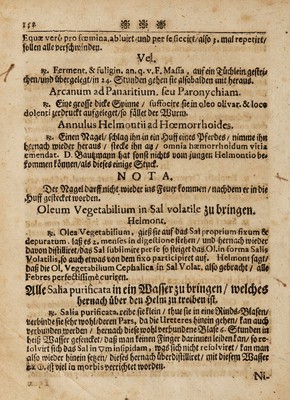 158 ❋ ❋ ❋
Equæ verò pro fœmina, abluirt/und per se siccirt/also 3. mal repetirt/
sollen alle verschwinden.
Vel.
℞. Ferment. & fuligin. an. q. v. F. Massa, auf ein Tüchlein gestri-
chen/und übergelegt/in 24. Stunden gehen sie alsobalden mit heraus.
Arcanum ad Panaritium, seu Paronychiam.
℞. Eine grosse dicke Spinne / suffocire sie in oleo olivar. & loco
dolenti zerdruckt aufgeleget/so fället der Wurm.
Annulus Helmontii ad Hœmorrhoides.
℞. Einen Nagel/schlag ihn in ein Huff eines Pferdes/ nimme ihn
hernach wieder heraus / stecke ihn an/ omnia hæmorrhoidum vitia
emendat. D. Bautzmann hat sonst nichts vom jungen Helmontio be-
kommen können/als dieses einige Stuck.
NOTA.
Der Nagel darff nicht wieder ins Feuer kommen/nachdem er in die
Huff gestecket worden.
Oleum Vegetabilium in Sal volatile zu bringen.
Helmont.
℞. Olea Vegetabilium, giesse sie auf das Sal proprium fixum &
depuratum, laß es 2. menses in digestione stehen/ und hernach wieder
davon distillirt/das Sal sublimire per se so steiget das Ol. in forma Salis
Volatilis, so auch etwas von dem fixo participiret auf. Helmont sagt/
daß die Ol. Vegetabilium Cephalica in Sal Volat. also gebracht/ alle
Febres perfectissimè curiren.
Alle Salia purificata in ein Wasser zu bringen/ welches
hernach über den Helm zu treiben ist.
℞. Salia purificata, reibe sie klein / thue sie in eine Rinds-Blasen/
verbinde sie sehr wohl/deren Pars, da die Ureteres hinein gehen/ kan auch
verbunden werden/ hernach diese wohl verbundene Blase 6. Stunden in
heiß Wasser gesencket/ daß man keinen Finger darinnen leiden kan/ so re-
solvirt sich das Sal in ▽m insipidam, was sich nicht resolvirt / kan man
also wieder hinein setzen/ dieses hernach überdistilliret / mit diesem Wasser
ist viel in morbis verrichtet worden.
Ni-